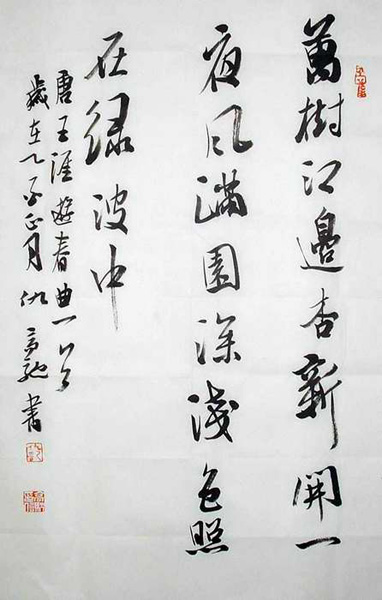 萬樹江邊杏新開一
夜风滿園深淺色照
在绿波中
唐王涯遊春曲一首
歲在乙酉正月仇馳書